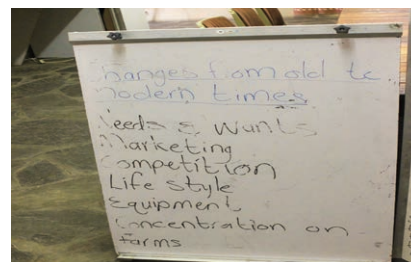 Changes from old to
modern times
Needs & Wants
Marketing
Competition
Life style
Equipment
Concentration on
farms